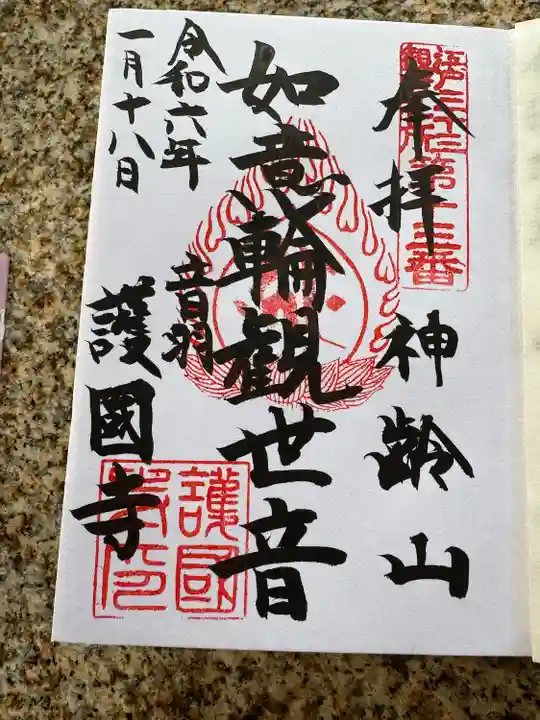 奉拝
神齢山
如意輪観世音
音羽
護國寺
令和六年
一月十八日
第十三番
護國